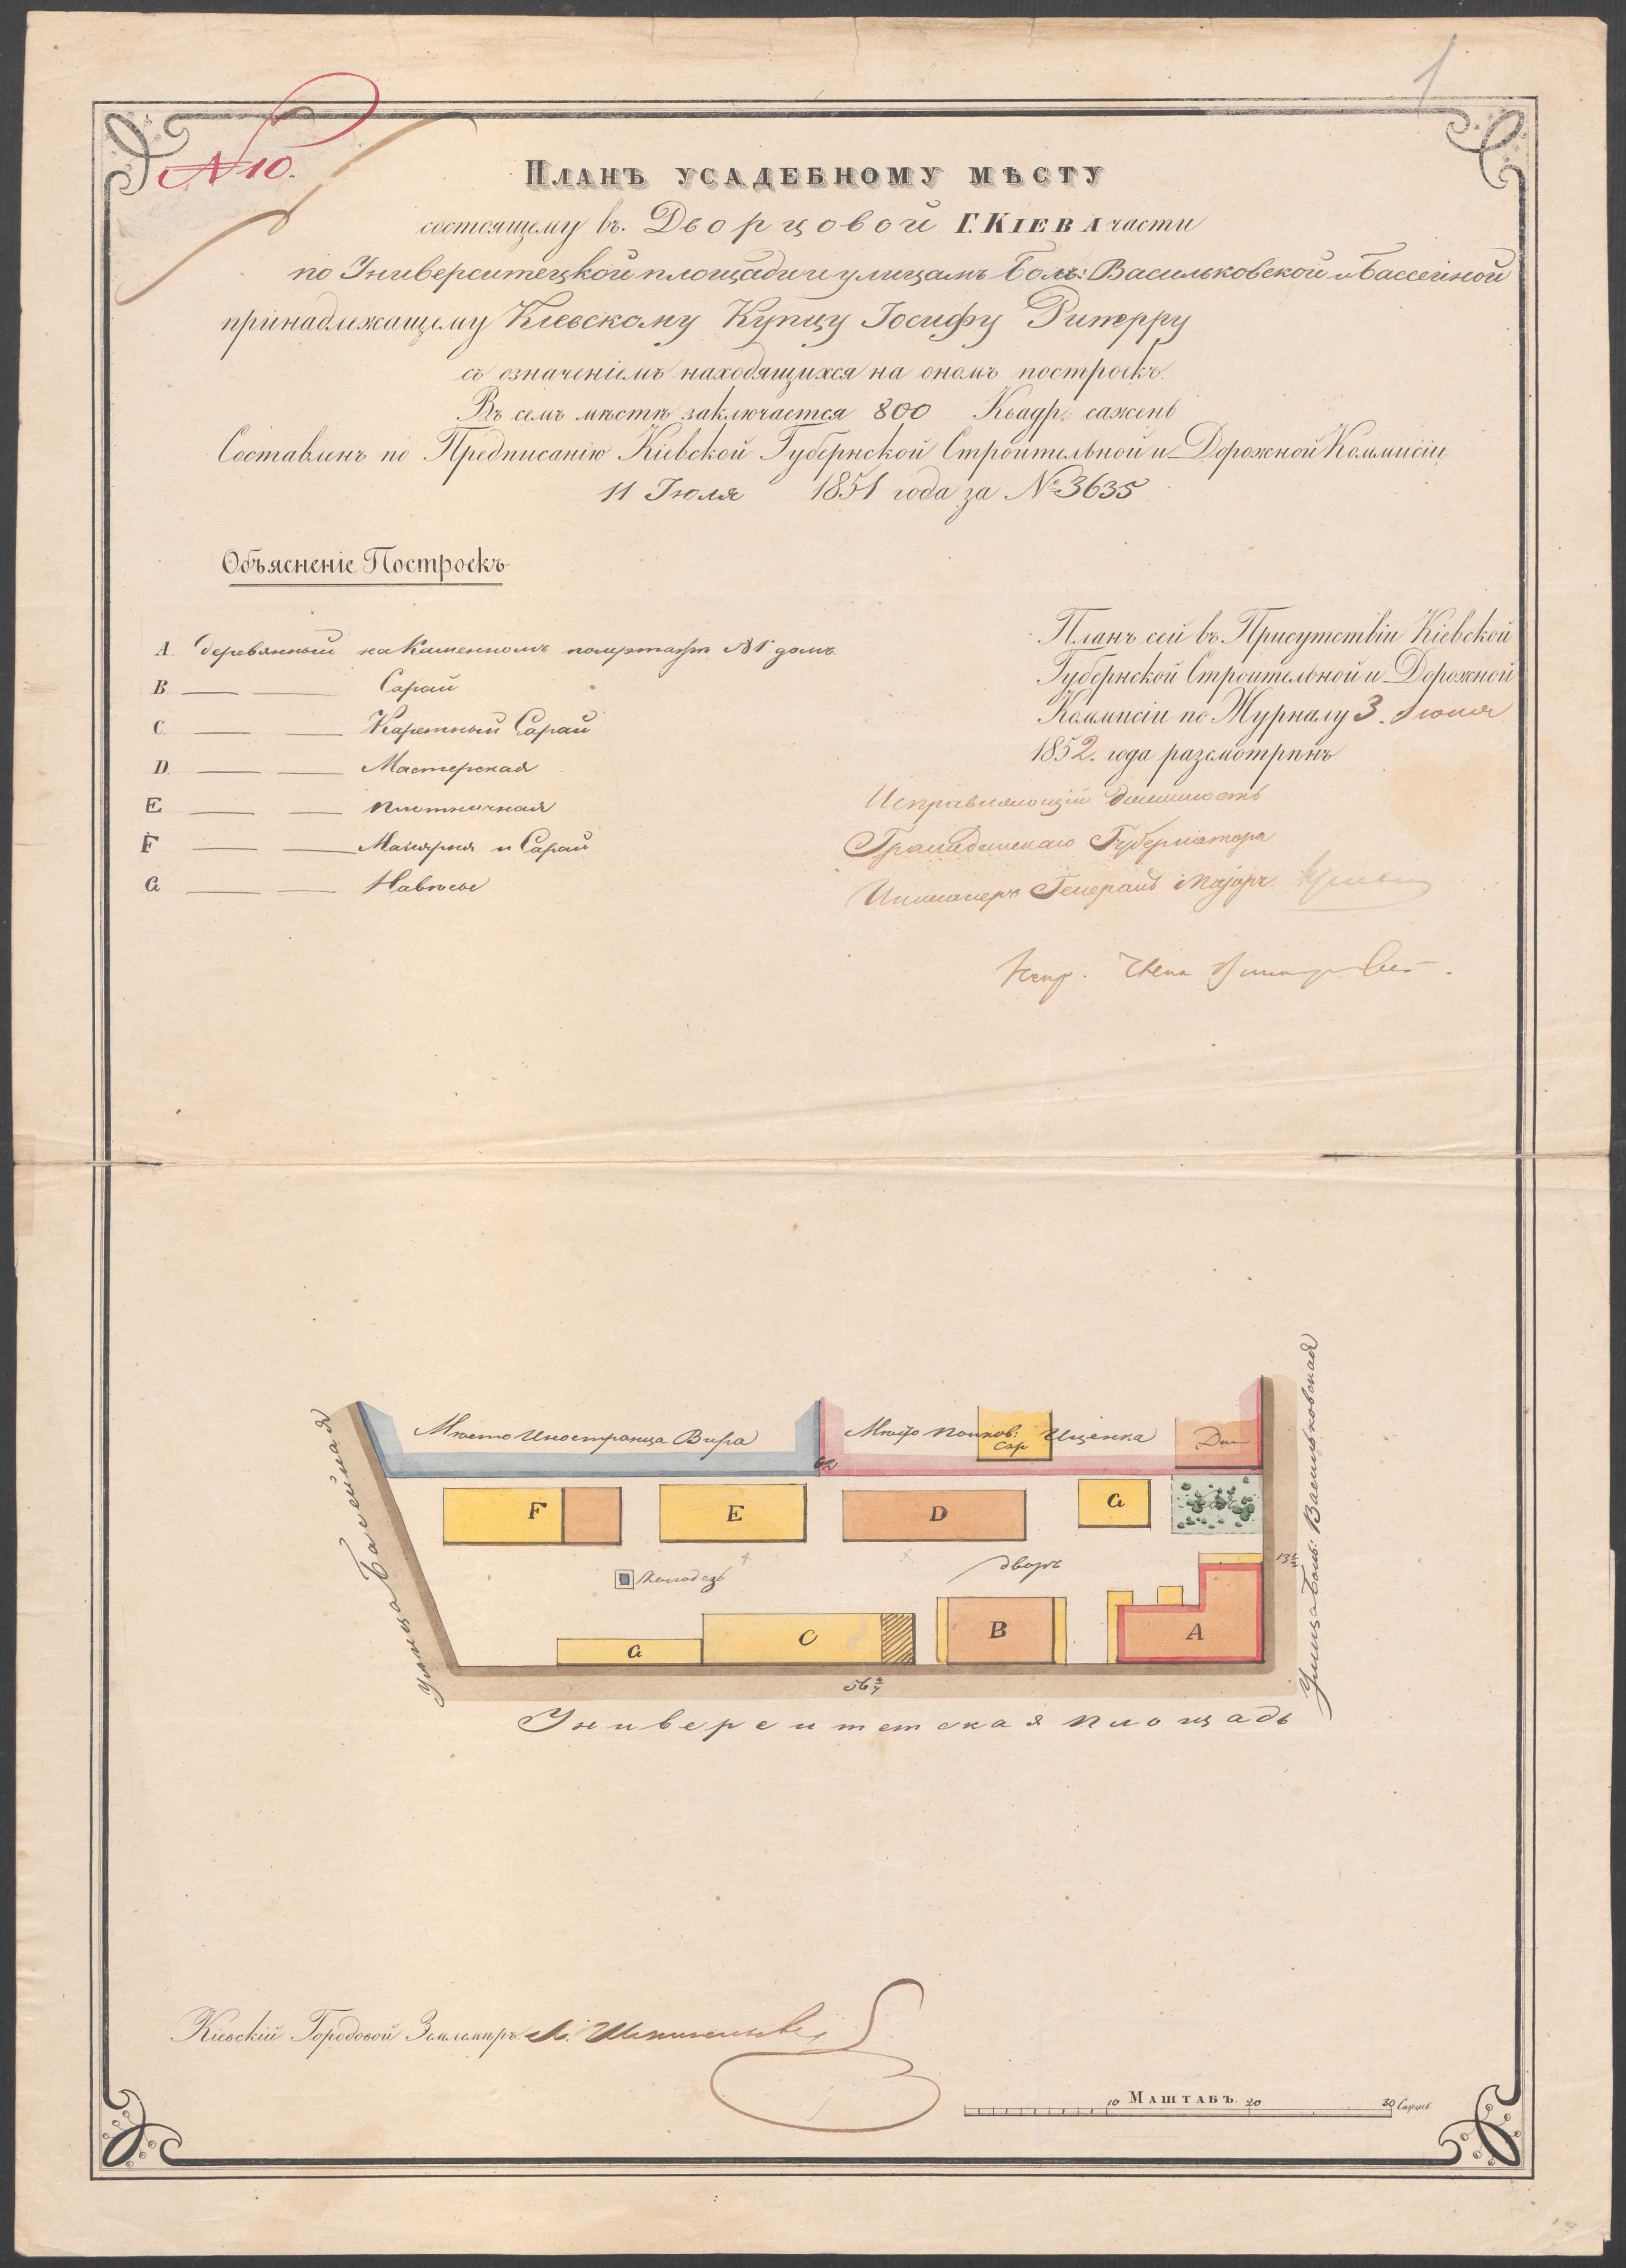 1
N 10.
Планъ усадебному мѣсту
состоящему въ Дворцовой Г. Кіева части
по Университецкой площади и улицамъ Боль: Васильковской и Бассейной
принадлежащему Кіевскому Купцу Іосифу Ритерру
съ означеніемъ находящихся на ономъ построекъ.
Въ семъ мѣстѣ заключается 800 Квадр: сажень
Составленъ по Предписанію Кіевской Губернской Строительной и Дорожной Коммисіи
11 Іюля 1851 года за № 3635
Объясненіе Построекъ
A. деревянный на Каменномъ полуэтажѣ № 1 домъ
B. Сарай
C. Каретный Сарай
D. Мастерская
E Плотничная
F Малярня и Сарай
G Навѣсы
Планъ сей въ Присутствіи Кіевской
Губернской Строительной и Дорожной
Коммисіи по Журналу 3. Іюня
1852. года разсмотрѣнъ
Исправляющій должность
Гражданскаго Губернатора
Инженеръ Генералъ Маіоръ
Мѣсто Иностранца Вира
Мѣсто Полков: Ищенка
Сар
Дом
62
F
E
D
G
Колодезь
дворъ
13 1/2
G
C
B
A
56 4/7
Улица Басейная
Улица Боль: Васильковская
Университетская площадь
Кіевскій Городовой Землемѣръ
Масштабъ.
10 20 30 Сажень